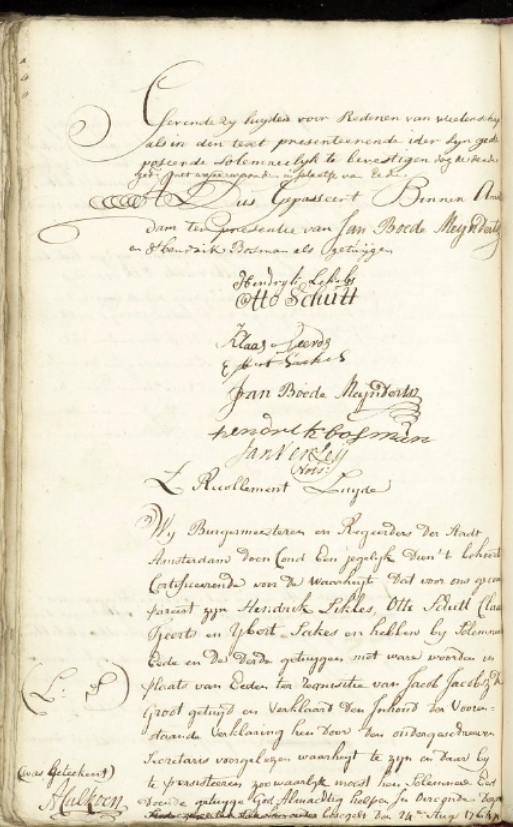 Gerende zy luyden voor Redenen van wetenschap
als in den text presenteerende ider syn gede
poseerde solemneelyk te bevestigen dog de derde
met ware woorden in plaetse van Eede
Dus Gepasseert Binnen Am
dam ten presentie van Jan Boede Meynderts
en Hendrik Bosman als getuygen
Hendryk Lekles
Otto Schutt
Klaas Geerds
Jan Boede Meynderts
hendrik bosman
Jan Verley
Nots:
L Recollement Luyde
Wy Burgermeesteren en Regeerders der Stadt
Amsterdam doen Cond Een jegelyk Dien't behoert
Certificeerende voor De Waarhuyt Dat voor ons gecom
pareert zyn Hendrick Likles, Otto Schutt Claas
Tjeerts en Ybert Sickes en hebben by Solemneele
Eede en De Derde getuygen met ware woorden in
plaats van Eeden ter requisitie van Jacob Jacobsz de
Groot getuygd en Verklaard Den Inhoud der Vooren-
staande Verklaring hen door Den ondergeschreven
Secretaris voorgelezen waarhuyt te zyn en daar by
te persisteeren zoo waarlyk moest hen Solemneele Eed
Doende getuyge God Almachtig helpen In Oirconde
gesegelt Den 24en Aug 1764
L: S
(was Geteekent)
A Calkoen